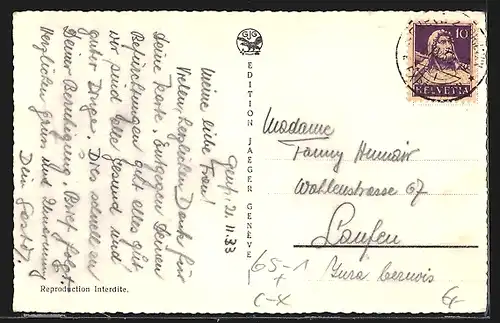 Genf, 21. 11. 33
Meine liebe Frau!
Vielen herzlichen Dank für
deine Karte. Entgegen Deinen
Befürchtungen geht alles gut
wir sind alle gesund und
guter Dinge. Dies schnell zu
Deiner Beruhigung. Brief folgt.
Herzlichen Gruss und Umarmung
Dein
GJG
EDITION JAEGER GENÈVE
Reproduction Interdite.
10
HELVETIA
Madame
Fanny
Wahlenstrasse 67
Laufen
Jura bernois
65-1
+
C-X